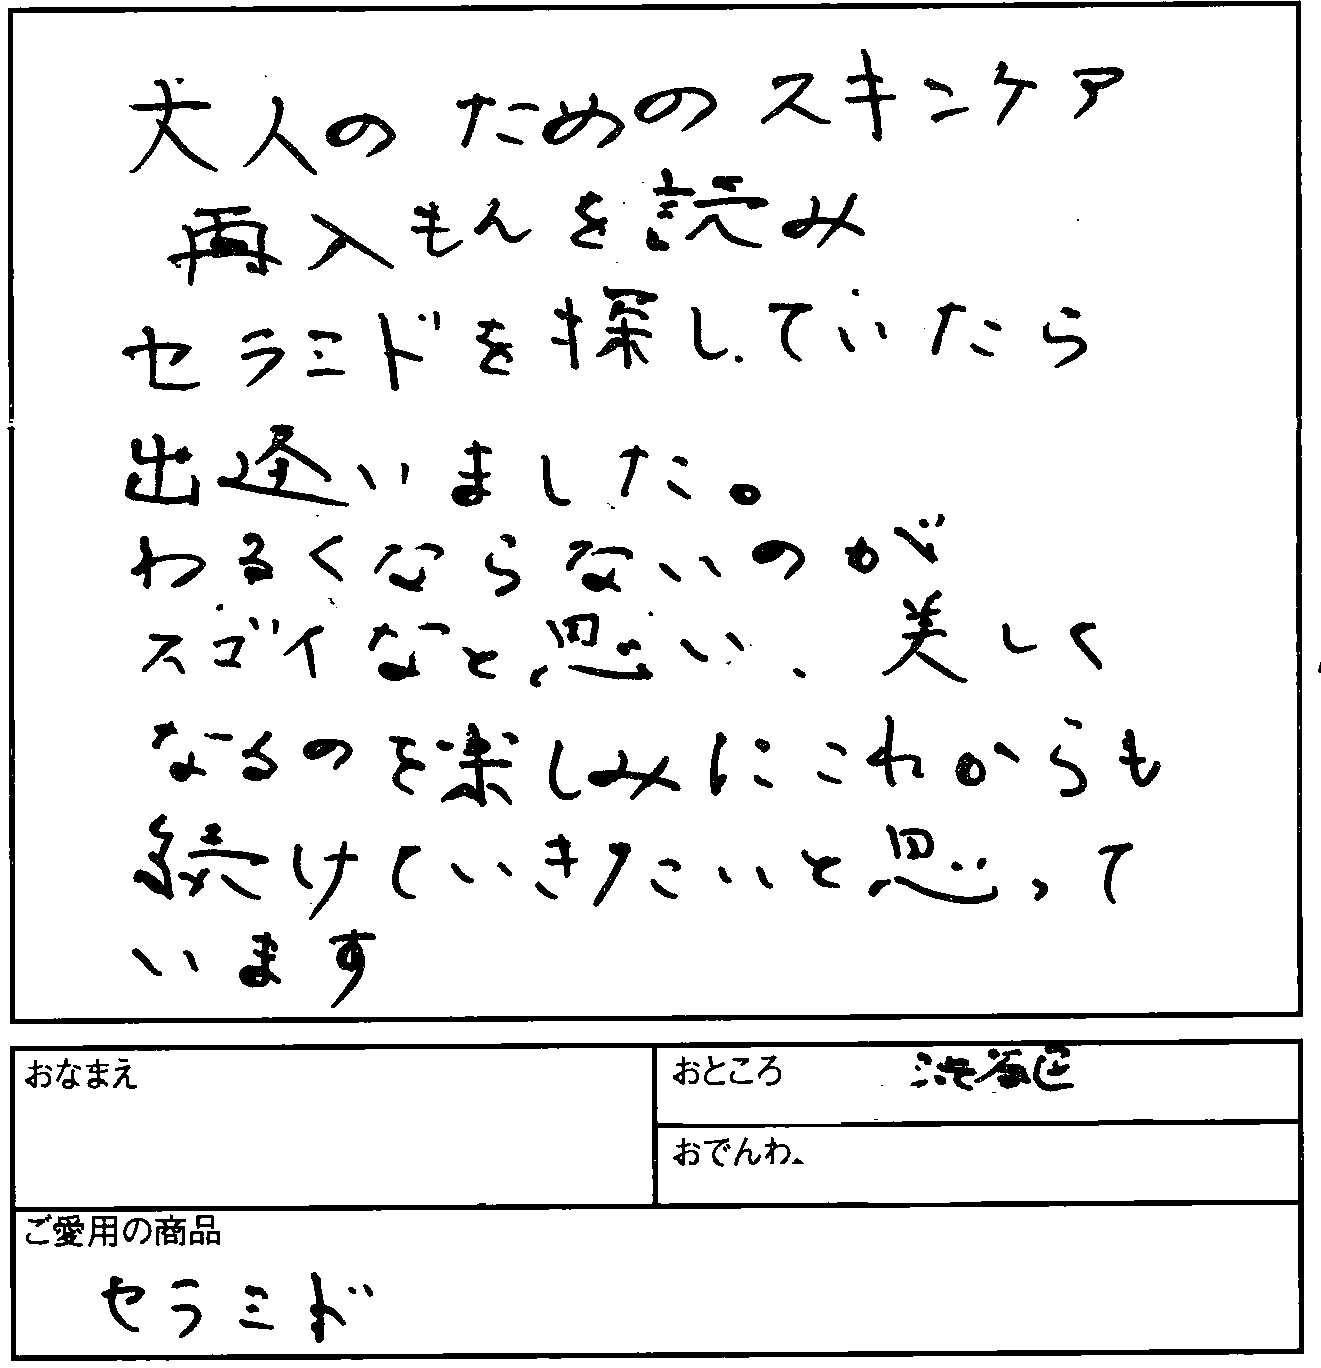 大人のためのスキンケア
再入もんを読み
セラミドを探していたら
出逢いました。
わるくならないのが
スゴイなと思い、美しく
なるのを楽しみにこれからも
続けていきたいと思って
います
おなまえ
おところ 渋谷区
おでんわ
ご愛用の商品
セラミド